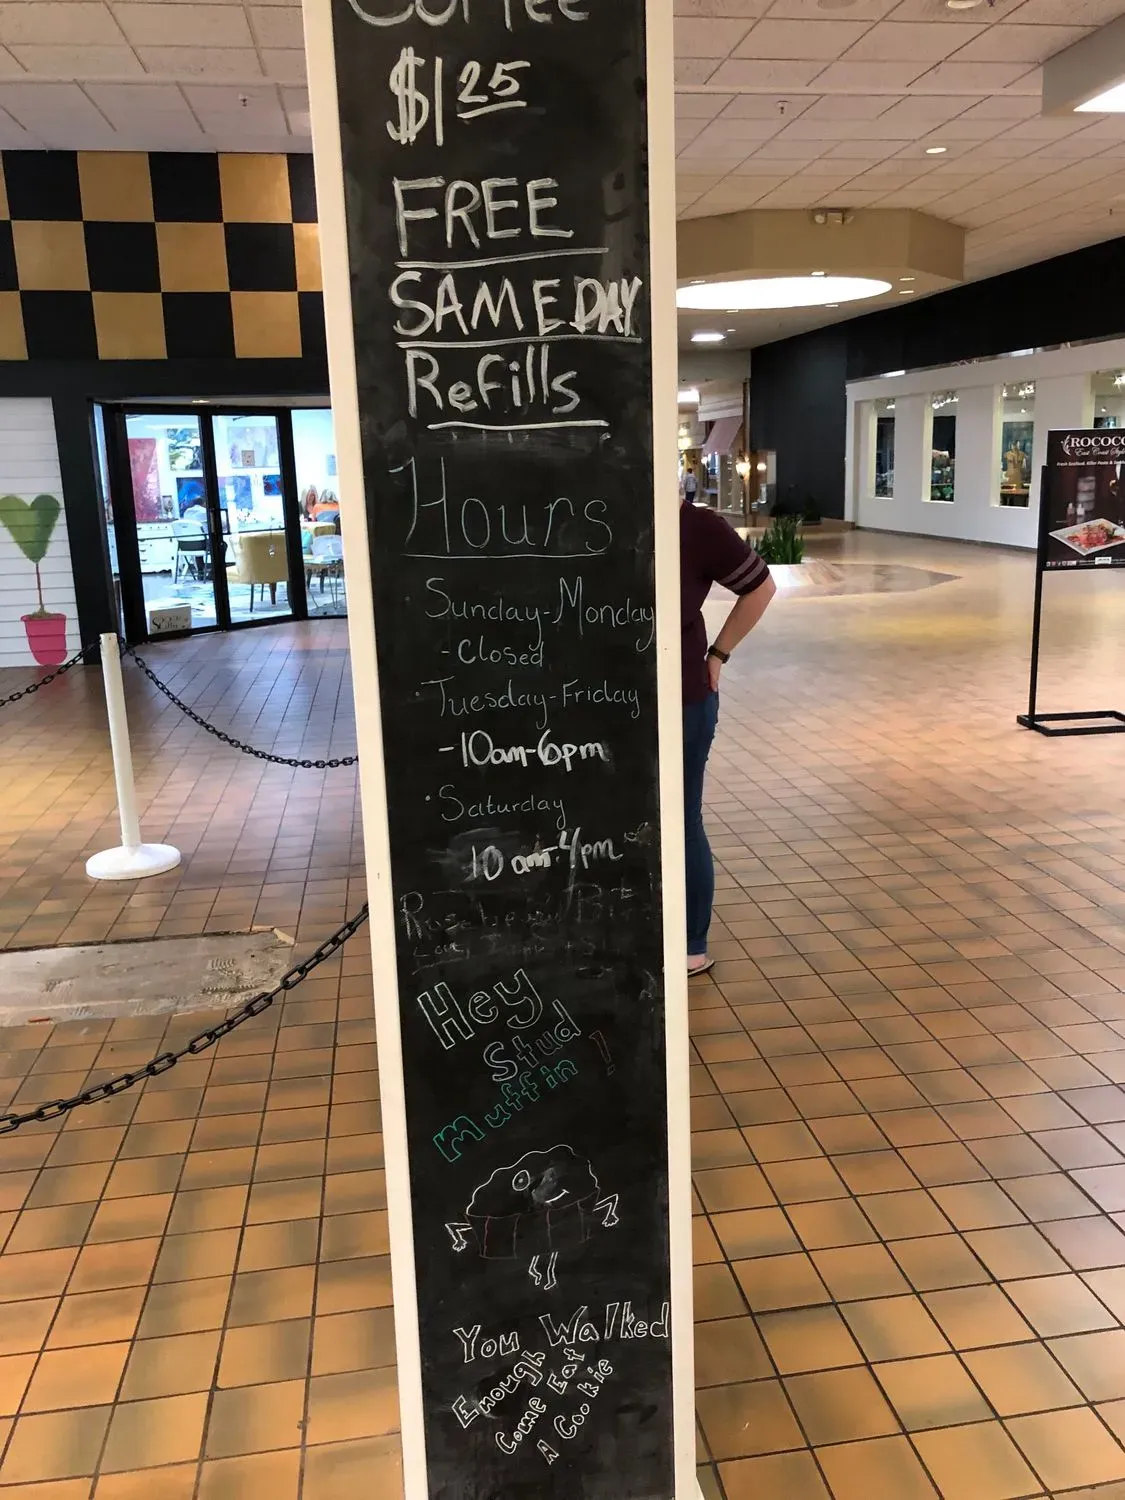 Coffee
$1 25
FREE
SAME DAY
Refills
Hours
Sunday-Monday
-Closed
Tuesday-Friday
-10am-6pm
Saturday
10am-4pm
Hey
Stud
Muffin!
You Walked
Enough
Come Eat
A Cookie
ROCOCO
East Coast Style